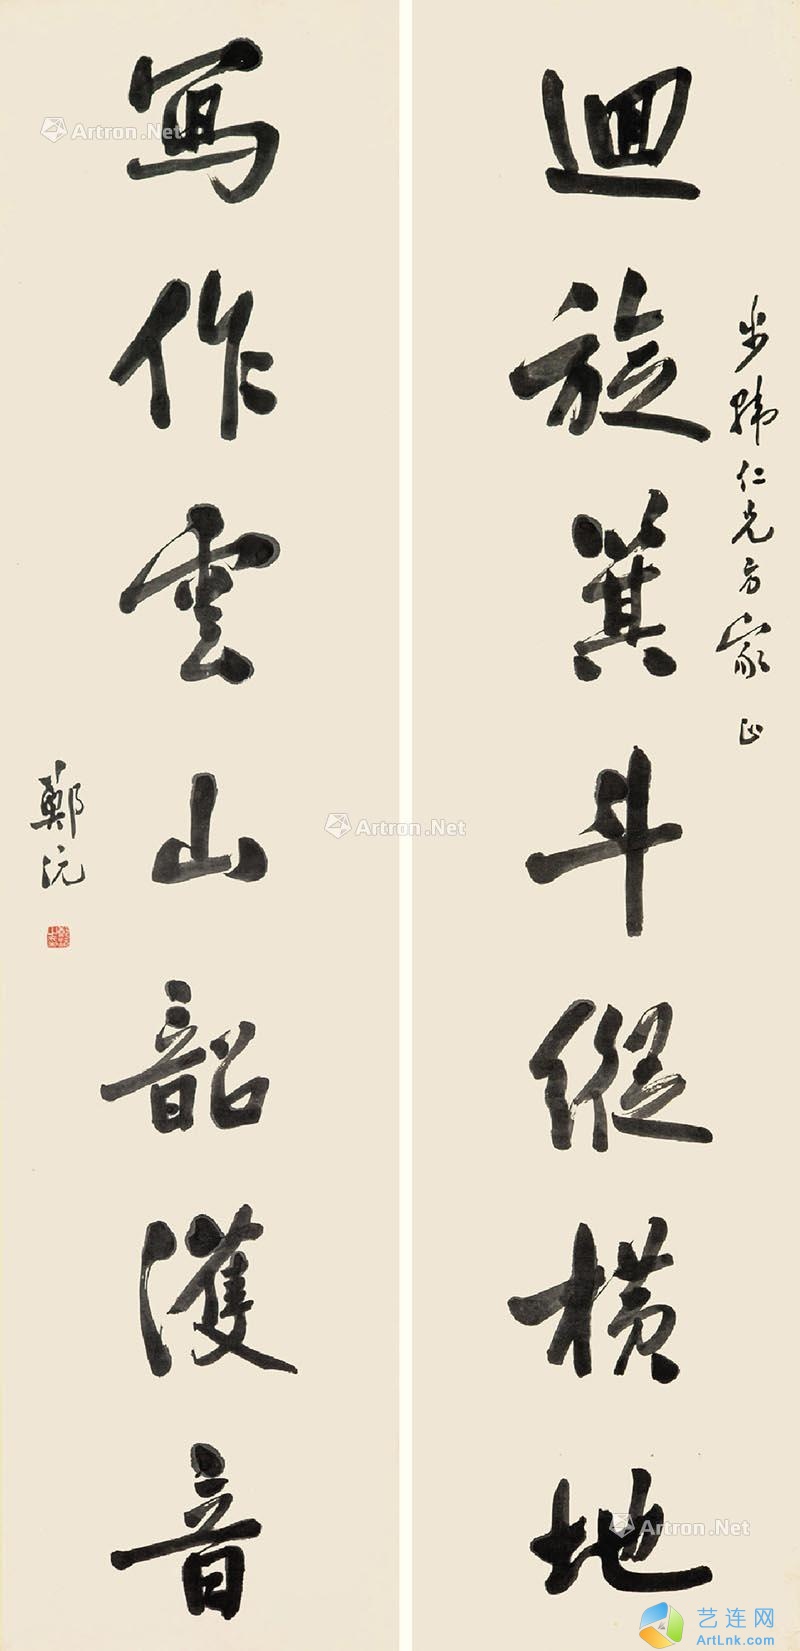 步韩仁兄方家正
迴旋箕斗縱橫地
寫作雲山韶濩音
鄭沅
Artron.Net
Artron.Net
Artron.Net
艺连网
ArtLnk.com